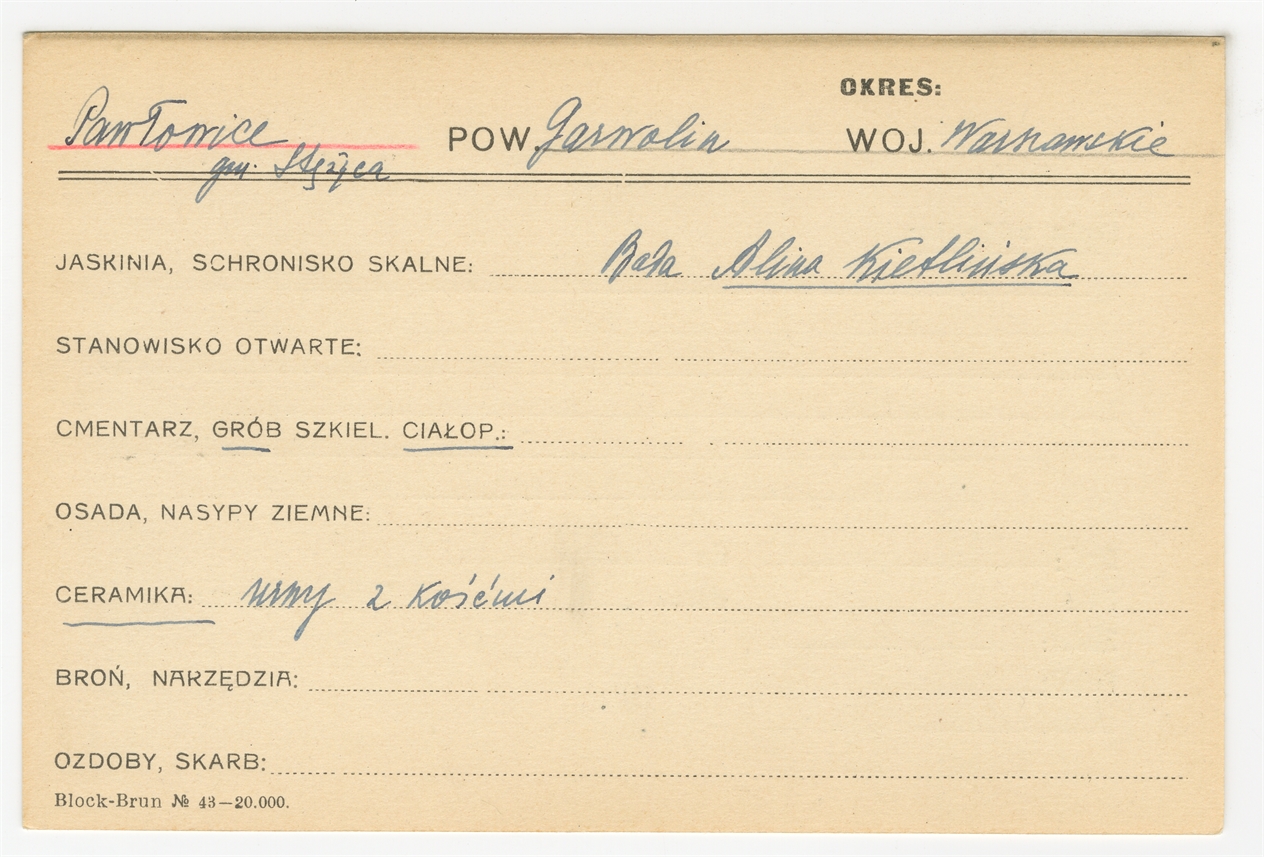 OKRES:
Pawłowice POW. Garwolin WOJ. Warszawskie
gm. Stężyca
JASKINIA, SCHRONISKO SKALNE: Bada Alina Kietlińska
STANOWISKO OTWARTE:
CMENTARZ, GRÓB SZKIEL. CIAŁOP.:
OSADA, NASYPY ZIEMNE:
CERAMIKA: urny z kośćmi
BROŃ, NARZĘDZIA:
OZDOBY, SKARB:
Block-Brun № 43—20.000.